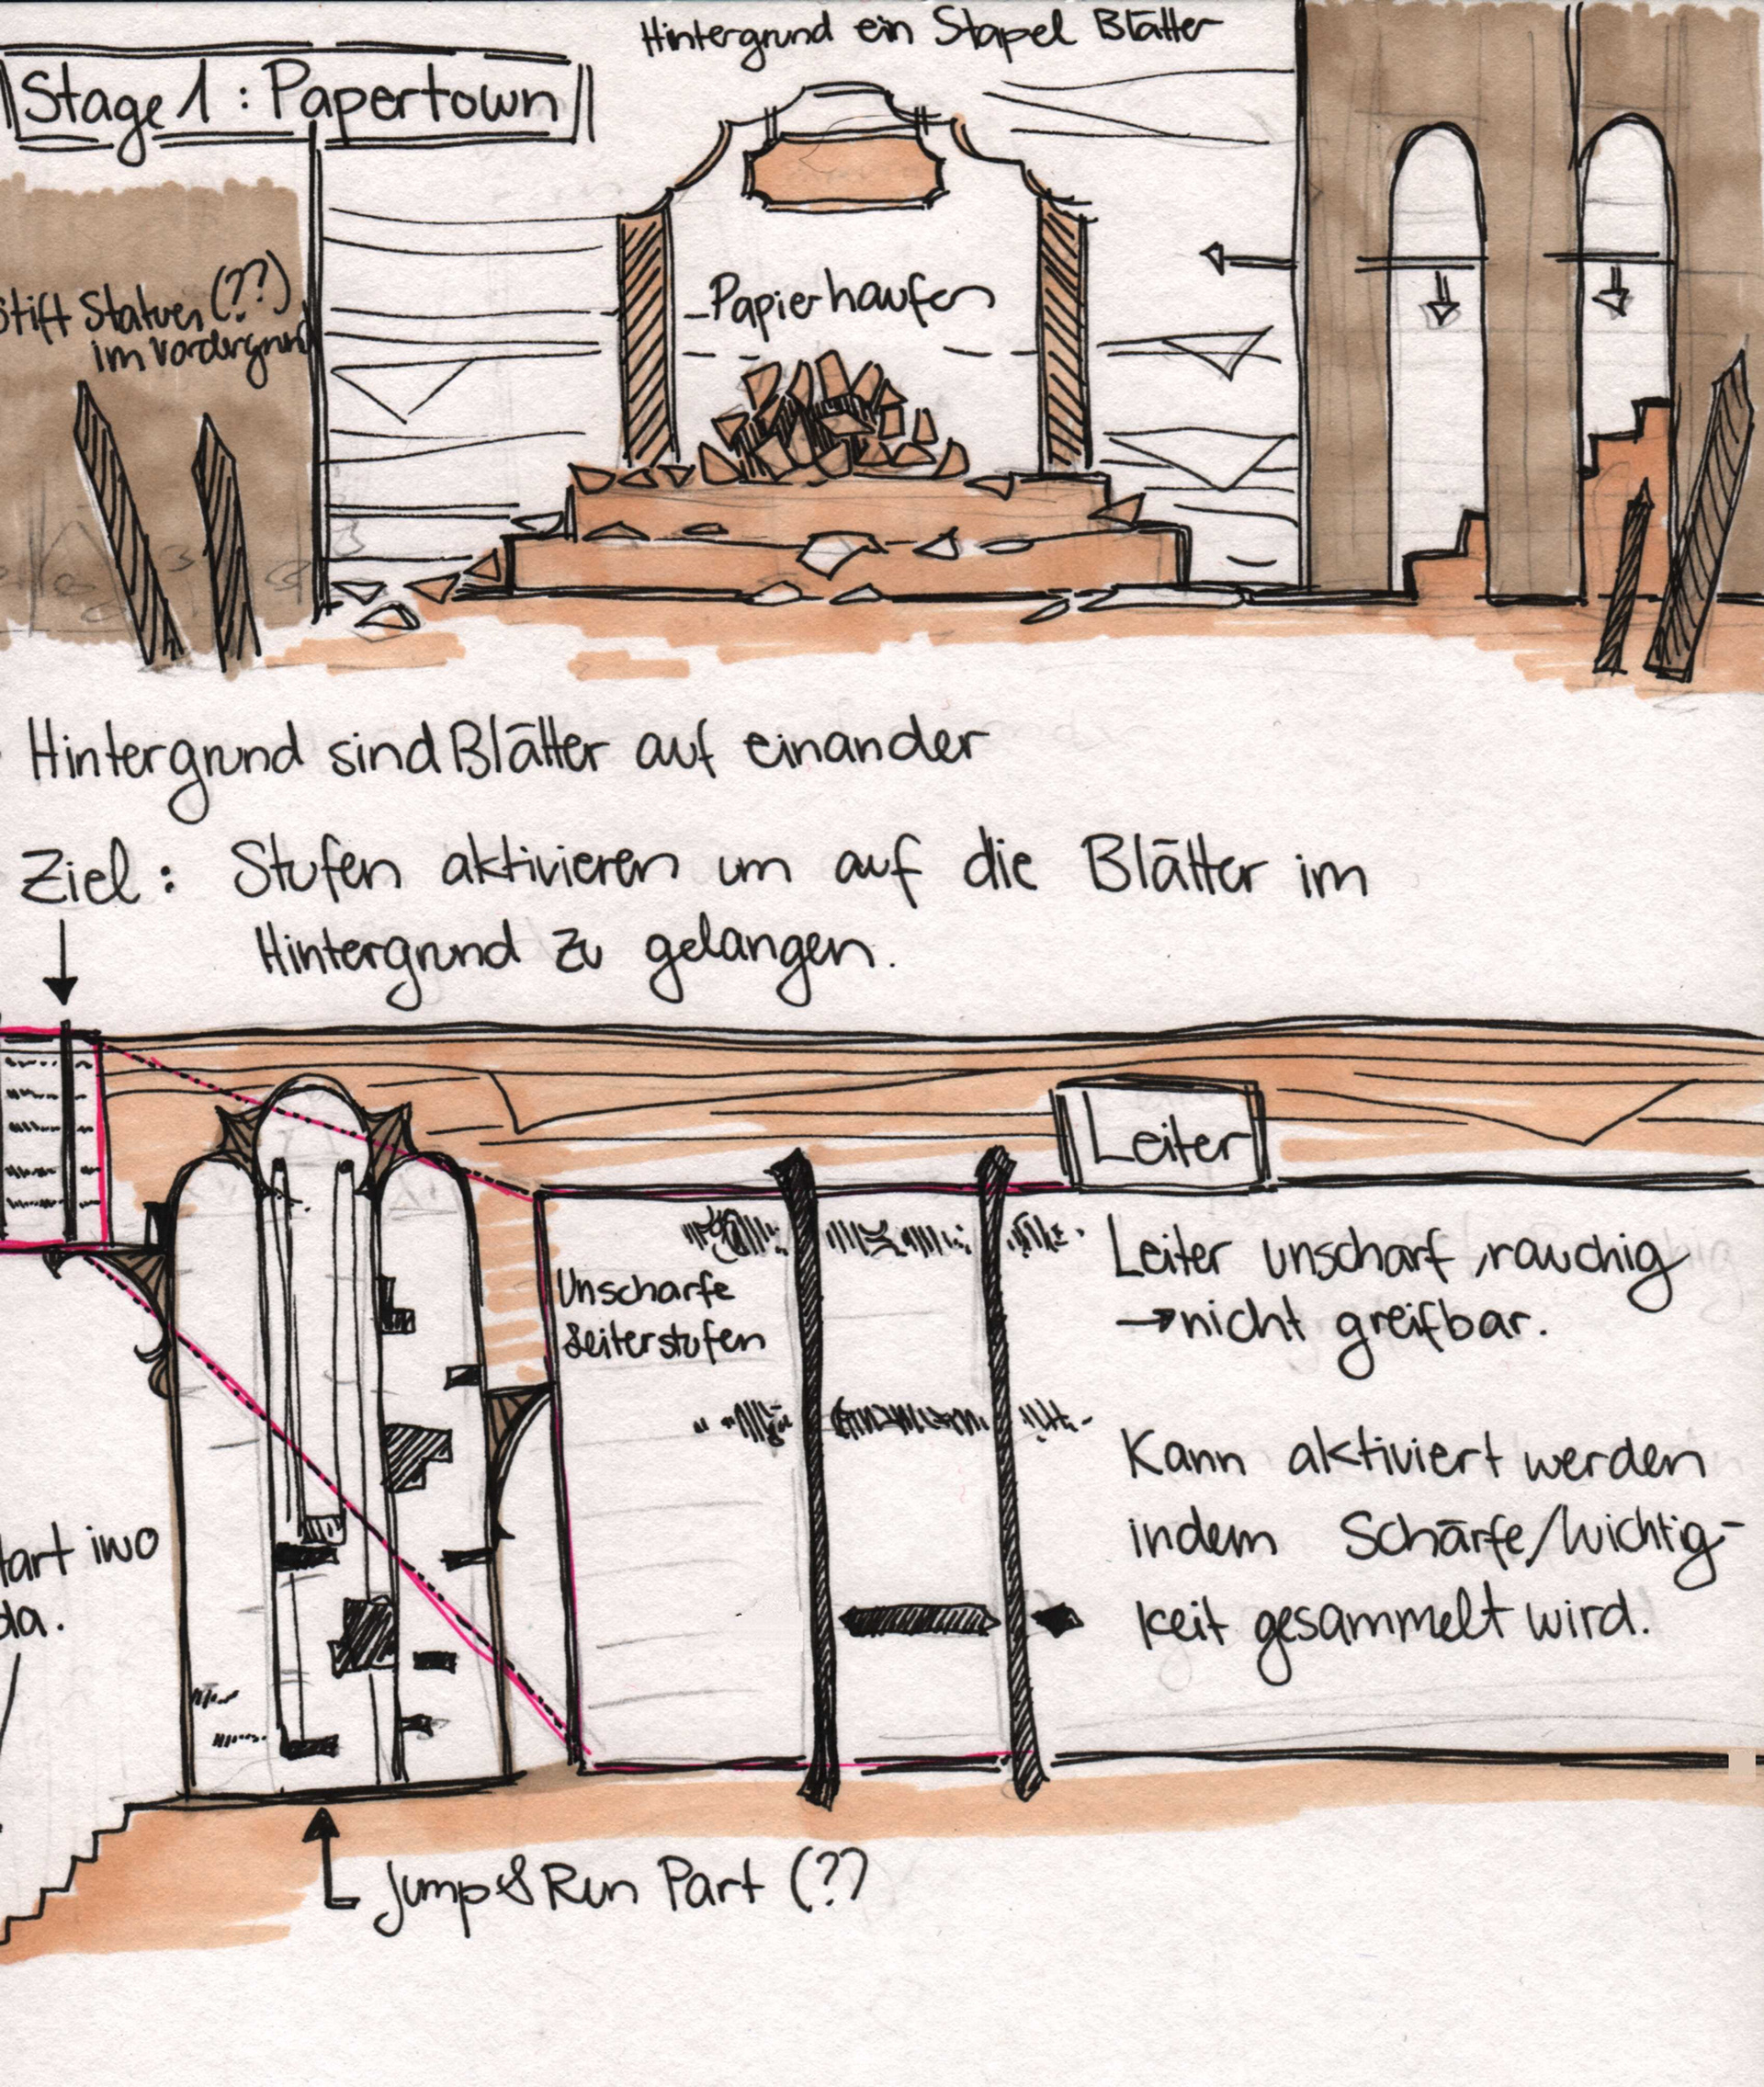 Hintergrund ein Stapel Blätter
Stage 1: Papertown
Stift Statuen (??)
im Vordergrund
Papierhaufen
Hintergrund sind Blätter auf einander
Ziel: Stufen aktivieren um auf die Blätter im
Hintergrund zu gelangen.
Leiter
Unscharfe
Leiterstufen
Leiter unscharf, rauchig
→ nicht greifbar.
Kann aktiviert werden
indem Schärfe/Wichtig-
keit gesammelt wird.
tart iwo
da.
Jump & Run Part (??)